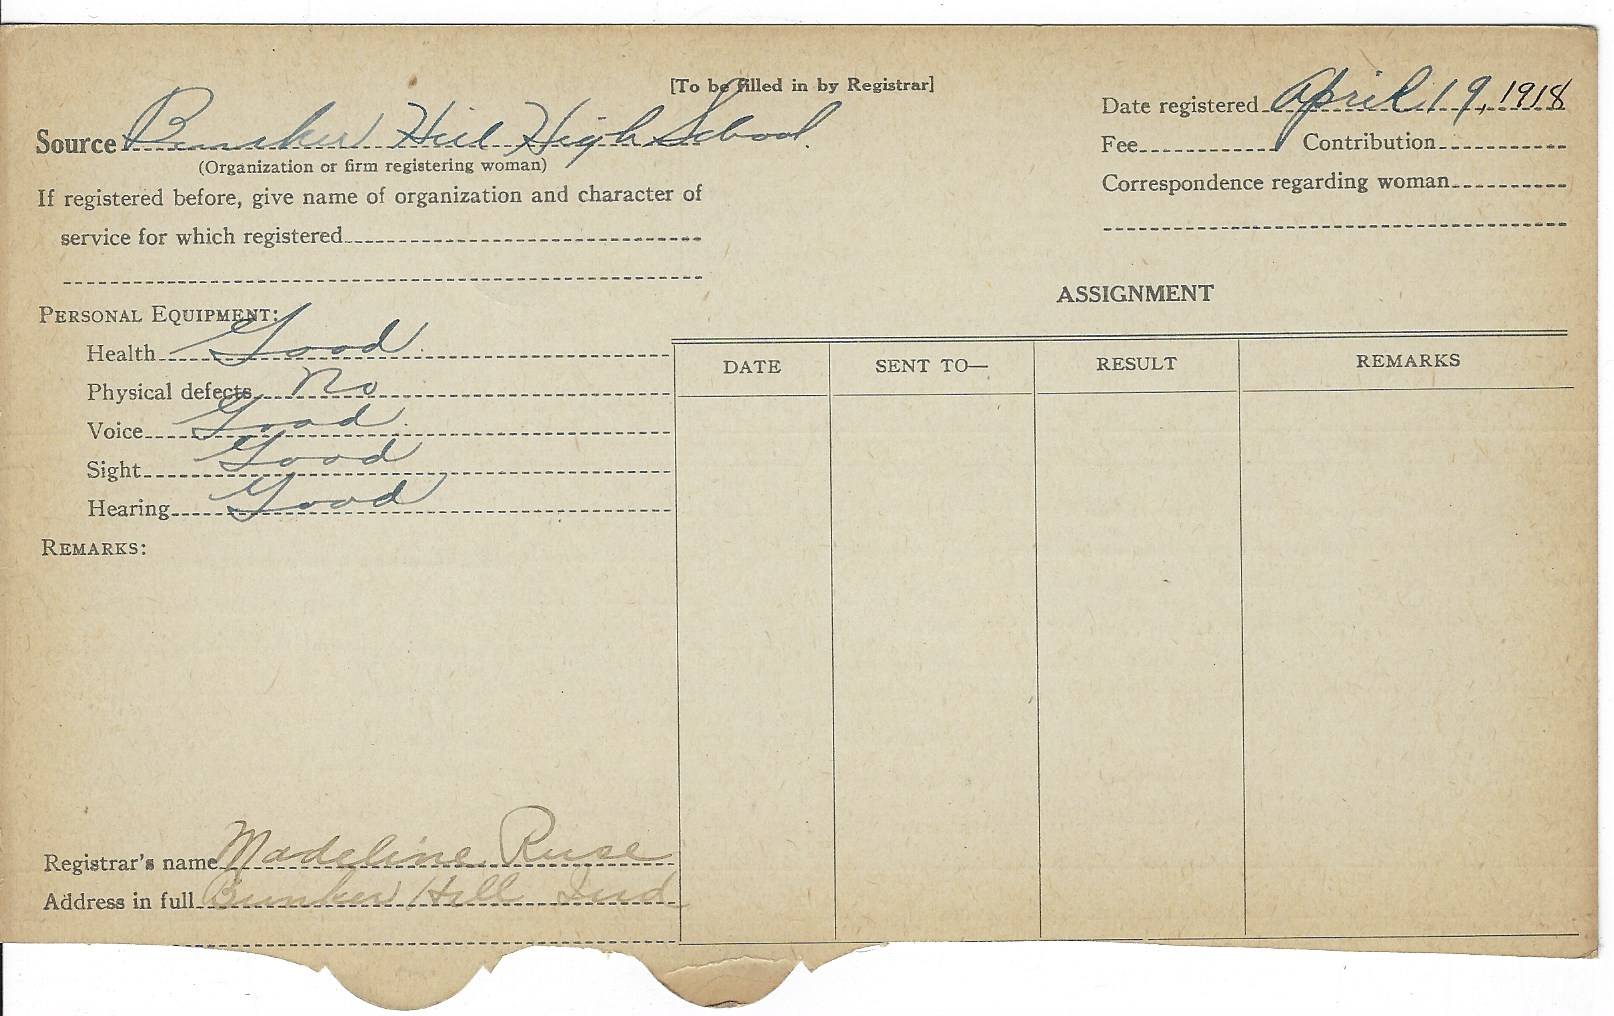 [To be filled in by Registrar]
Source Bunker Hill High School.
(Organization or firm registering woman)
If registered before, give name of organization and character of
service for which registered
PERSONAL EQUIPMENT:
Health Good.
Physical defects No
Voice Good.
Sight Good
Hearing Good
REMARKS:
Registrar's name Madeline Ruse
Address in full Bunker Hill Ind
Date registered April 19, 1918
Fee Contribution
Correspondence regarding woman
ASSIGNMENT
DATE SENT TO— RESULT REMARKS